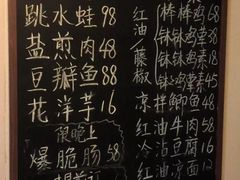 跳水蛙98
盐煎肉48
豆瓣鱼88
花洋芋16
限晚上
爆脆肠58
提前订
红油/藤椒
棒棒鸡素38
钵钵鸡素48
钵钵鸡素45
凉拌鲫鱼58
红油牛肉58
冷沾豆腐16
红油凉面12